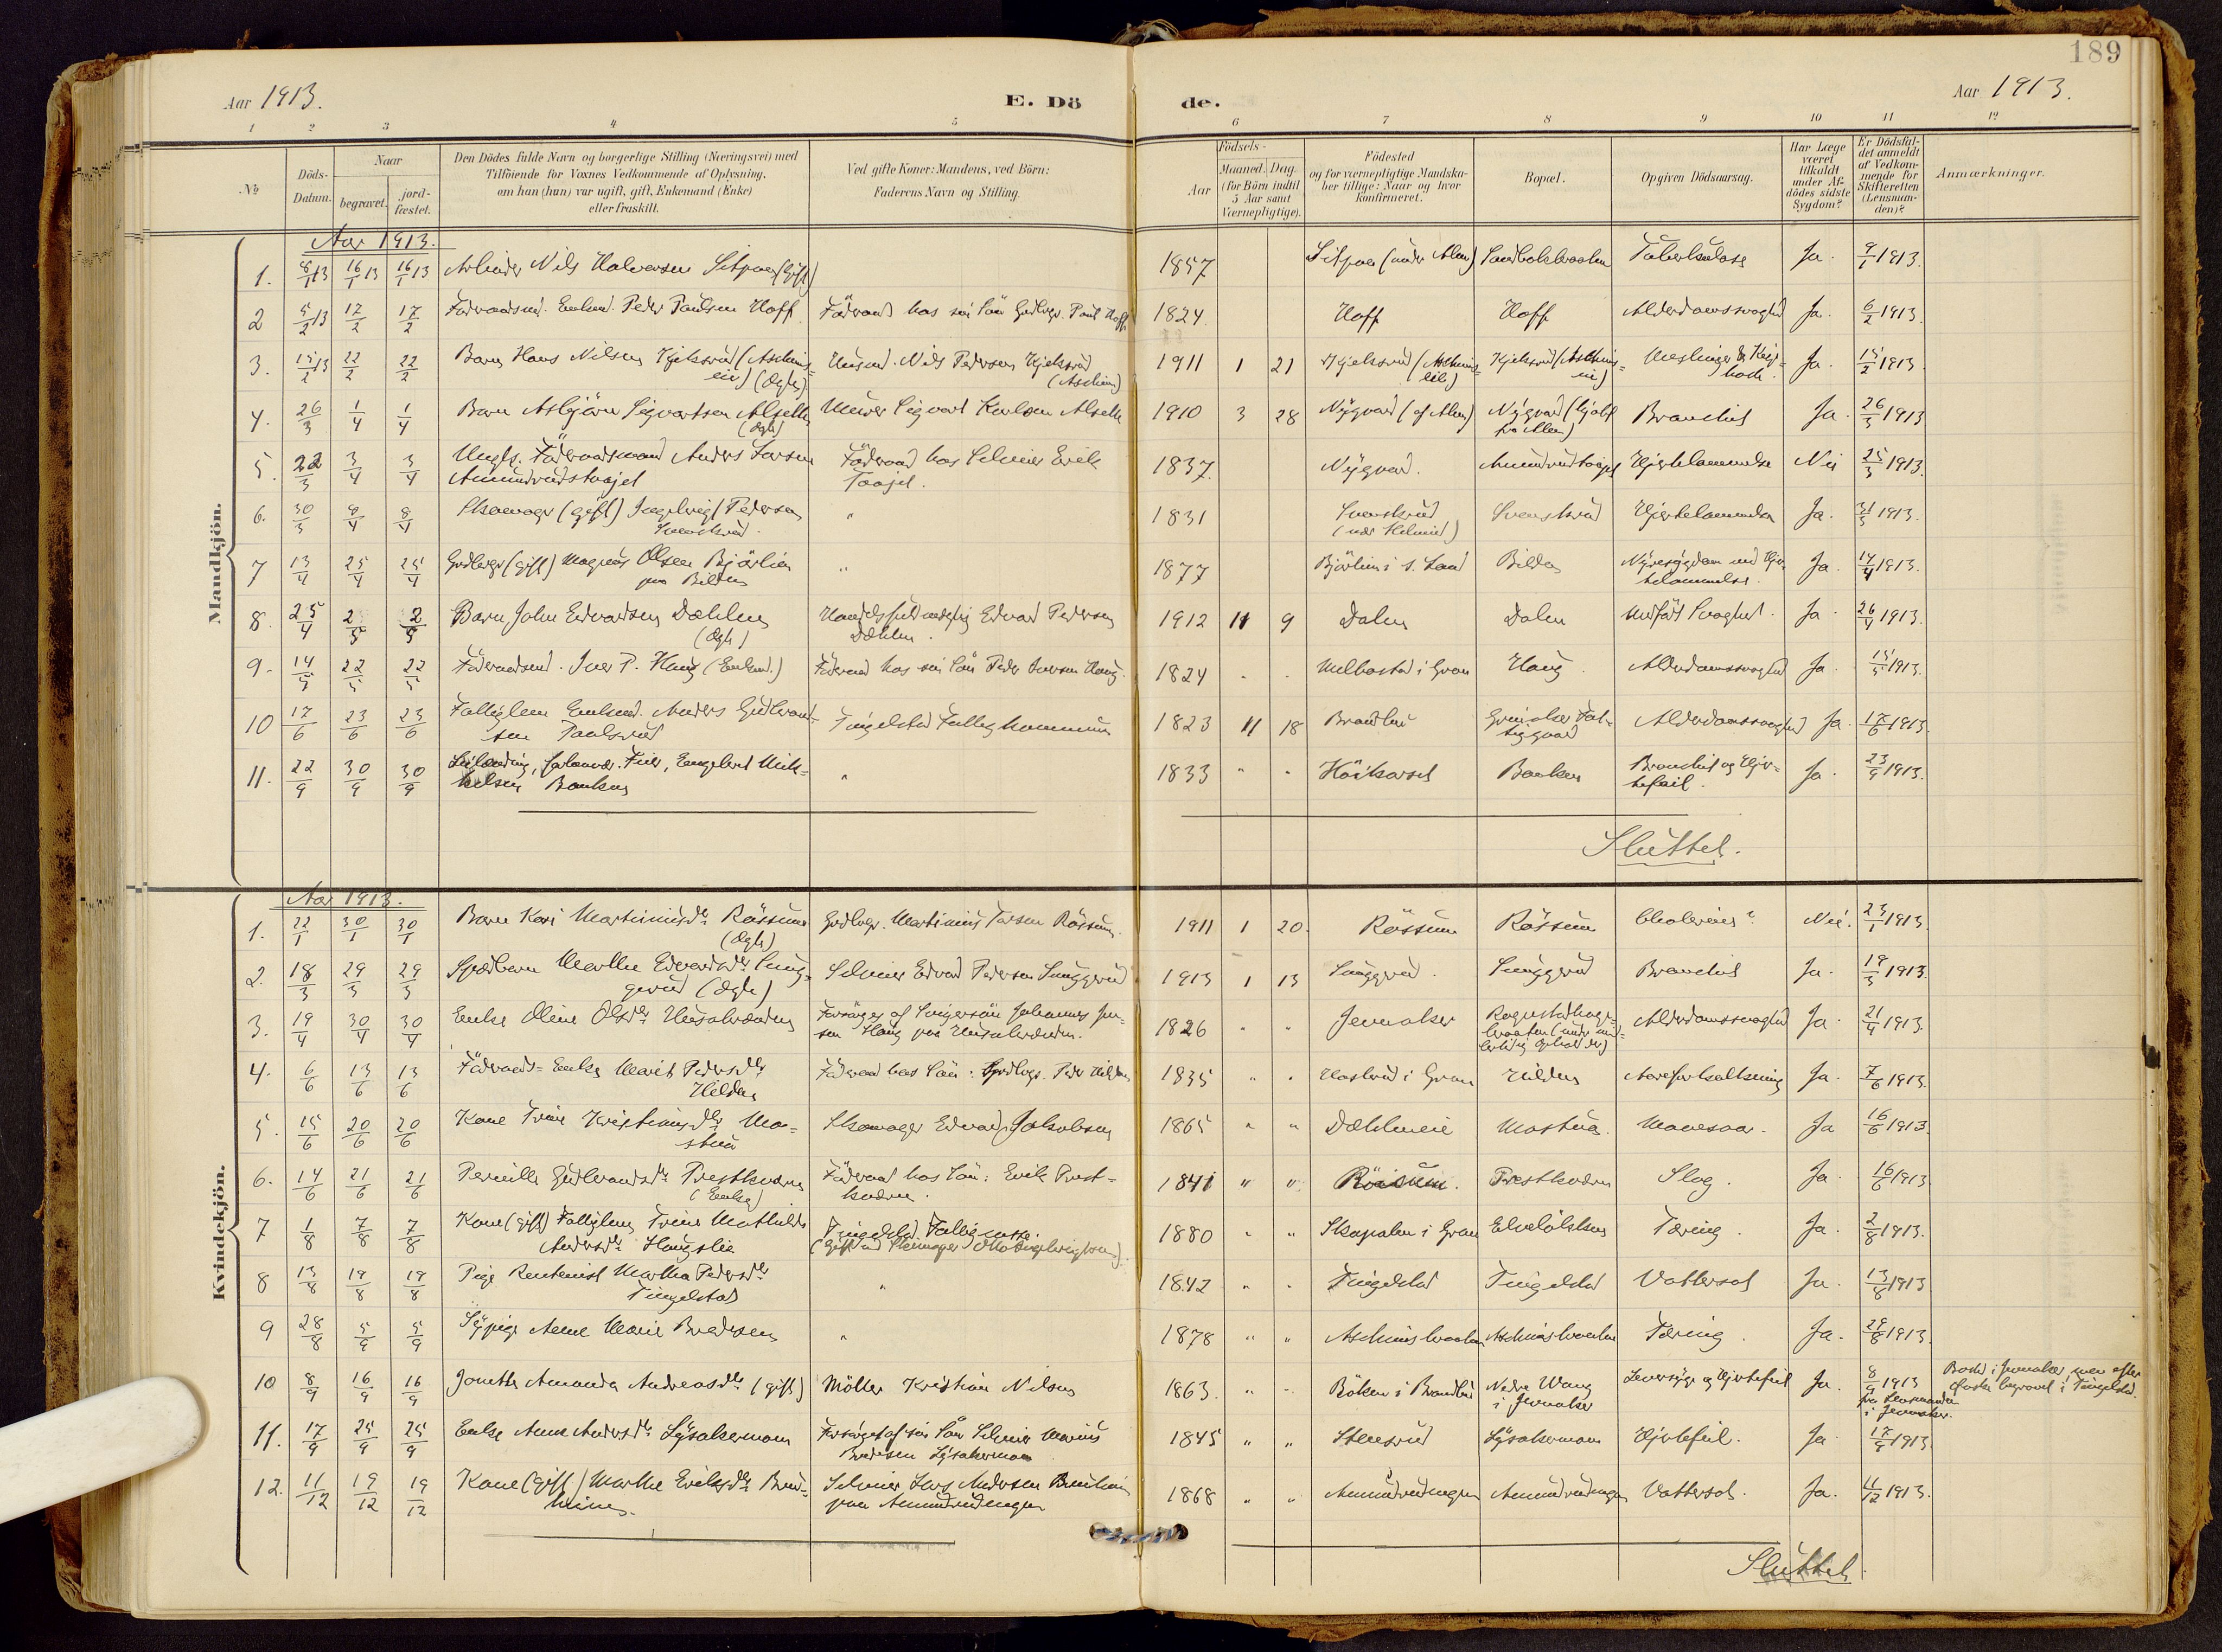 189
Aar 1913.
E. Dö
de.
Aar 1913.
1 2 3 4 5 6 7 8 9 10 11 12
No
Döds-Datum.
Naar
begravet.
jord-fæstet.
Den Dödes fulde Navn og borgerlige Stilling (Næringsvei) med
Tilföiende for Voxnes Vedkommende af Oplysning,
om han (hun) var ugift, gift, Enkemand (Enke)
eller fraskilt.
Ved gifte Koner: Mandens, ved Börn:
Faderens Navn og Stilling.
Födsels-
Aar
Maaned. Dag.
(for Börn indtil
5 Aar samt
Værnepligtige).
Födested
og for værnepligtige Mandska-
ber tillige: Naar og hvor
konfirmeret.
Bopæl.
Opgiven Dödsaarsag.
Har Læge
været
tilkaldt
under Af-
dödes sidste
Sygdom?
Er Dödsfal-
det anmeldt
af Vedkom-
mende for
Skifteretten
(Lensman-
den)?
Anmærkninger.
Mandkjön.
Aar 1913.
1. 8/1 13 16/1 13 16/1 13 Arbeider Nils Halvorsen (Gift) 1857 Tuberkulose Ja. 9/1 1913.
2 5/2 13 17/2 17/2 Föderaadsmd. Enkemd. Peder Paulsen Hoff Föderaad hos sin Sön Grdbrgr. Paul Hoff 1824. Hoff Hoff Alderdomssvaghed Ja. 6/2 1913.
3. 15/2 13 22/2 22/2 Barn Hans Nilsen Kjeksrud (Aschims-
eie) (Ægte) Nils Pedersen Kjeksrud
(Aschim) 1911 1 21 Kjeksrud (Aschims-
eie) Kjeksrud (Aschims-
eie) Meslinger & Kig-
hoste. Ja. 15/2 1913.
4. 26/3 1/4 1/4 Barn Asbjörn Sigvartsen Alsæth
(Ægte) Murer Sigvart Karlsen Alsæth 1910 3 28 Nÿgard Nÿgard Bronchit Ja. 26/3 1913
5. 22/3 3/4 3/4 Ungk. Föderaadsmand Anders Larsen
Amundrudstrøjet Föderaad hos Selveier Erik
1837. Nÿgard. Hjertelammelse Nei 25/3 1913.
6. 30/3 8/4 8/4 Skomager (gift) Ingebrigt Pedersen
Svenskrud. " 1831 Svenskrud
Svenskrud Hjertelammelse Ja. 31/3 1913.
7 13/4 25/4 25/4 Grdbrgr (gift) Magnus Olsen Björlien
paa Bilden " 1877 Björlien i S. Land Bilden Nyresÿgdom med Hjer-
telammelse. Ja. 14/4 1913.
8. 25/4 2/5 2/5 Barn John Edvardsen Dæhlen
(Ægte) Edvard Pedersen
Dæhlen. 1912 11 9 Dalen Dalen Medfødt Svaghed. Ja. 26/4 1913.
9. 14/5 22/5 22/5 Föderaadsmd. Iver P. Haug (Enkemd.) Föderaad hos sin Sön Peder Iversen Haug. 1824 " " Melbostad i Gran Haug. Alderdomssvaghed Ja. 15/5 1913.
10 17/6 23/6 23/6 Fattiglem Enkemd. Anders Gudbrand-
sen Paulsrud Tingelstad Fattigkommune 1823 11 18 Brandbu Grinaker Fat-
tiggaard Alderdomssvaghed Ja. 17/6 1913.
11. 22/9 30/9 30/9 Engebret Mik-
kelsen Banken " 1833 " " Höikorset Banken Bronchit og Hjer-
tefeil. Ja. 23/9 1913.
Sluttet.
Kvindekjön.
Aar 1913.
1. 22/1 30/1 30/1 Barn Kari Martiniusdr. Røssum
(Ægte) Grdbrgr. Martinius Larsen Røssum. 1911 1 20. Røssum Røssum Cholerine? Nei. 23/1 1913.
2. 18/3 29/3 29/3 Spædbarn Marthe Edvardsdr. Sung-
gerud (Ægte) Selveier Edvard Pedersen Sunggerud 1913 1 13 Sunggerud. Sunggerud Bronchit Ja. 19/3 1913.
3. 19/4 30/4 30/4 Enke Oline Olsdr. Forsörges af Svigersön Johannes
1826 " " Jevnaker Alderdomssvaghed Ja. 21/4 1913.
4. 6/6 13/6 13/6 Föderaads-Enke Marit Pedersdr.
Hilden Föderaad hos Sön: Grdbrgr. Peder Hilden 1835 " " Hilden Aareforkalkning Ja. 7/6 1913.
5. 15/6 20/6 20/6 Kone Trine Kristiansdr. Mo-
stua Skomager Edvard Jakobsen 1865 " " Dæhlineie Mostua. Mavesaar. Ja 16/6 1913.
6. 14/6 21/6 21/6 Pernille Gudbrandsdr. Prestkværn
(Enke) Föderaad hos Sön: Erik Prest-
kværn. 1841 " " Röisum. Prestkværn Slag. Ja. 16/6 1913.
7 1/8 7/8 7/8 Kone (gift) Fattiglem Trine Mathilde
Andersdr. Haugslie Tingelstad Fattigkasse.
1880 " " i Gran Tæring. Ja. 2/8 1913.
8 13/8 19/8 19/8 Pige Rentenist Martha Pedersdr.
Tingelstad " 1842 " " Tingelstad Tingelstad Vattersot Ja. 13/8 1913
9 28/8 5/9 5/9 Sÿpige Anne Marie Bredesen " 1878 " " Aschimsbraaten Aschimsbraaten Tæring. Ja. 29/8 1913.
10 8/9 16/9 16/9 Jonette Amanda Andreasdr. (gift) Möller Kristian Nilsen 1863. " " Röken i Brandbu Nedre Wang
i Jevnaker Leversÿge og Hjertefeil Ja. 8/9 1913
fra Lensmanden
i Jevnaker. Bodde i Jevnaker, men efter
Önske begravet i Tingelstad.
11. 17/9 25/9 25/9 Enke Anne Andersdr. Lÿsakermoen Forsörget af sin Sön Selveier Marius
Bredesen Lÿsakermoen 1845 " " Stensrud Lÿsakermoen Hjertefeil. Ja 17/9 1913
12. 11/12 19/12 19/12 Kone (gift) Marthe Eriksdr.
Selveier Lars Andersen
paa Amundrudengen 1868 " " Amundrudengen Amundrudengen Vattersot. Ja. 11/12 1913.
Sluttet.